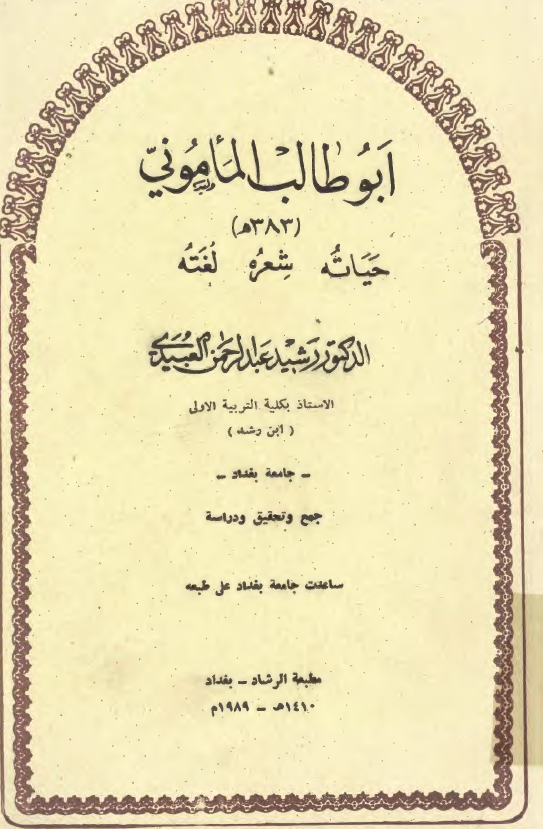 أَبُو طَالِبْ المَأمُونيّ
(٣٨٣هـ)
حَيَاتُه شِعرُه لُغَتُه
الدكتور رَشيد عَبدالرحمن العُبيدي
الاستاذ بكلية التربية الاولى
( ابن رشد )
ــ جامعة بغداد ــ
جمع وتحقيق ودراسة
ساعدت جامعة بغداد على طبعه
مطبعة الرشاد ــ بغداد
١٤١٠هـ ــ ١٩٨٩م